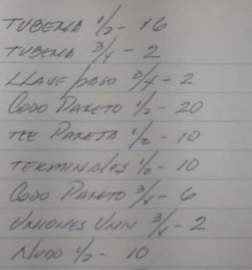 TUBERIA 1/2 - 16
TUBERIA 3/4 - 2
LLAVE PASO 3/4 - 2
CODO PARETO 1/2 - 20
TEE PARETO 1/2 - 10
TERMINALES 1/2 - 10
CODO PARETO 3/4 - 6
UNIONES UNIV 3/4 - 2
NUDO 1/2 - 10